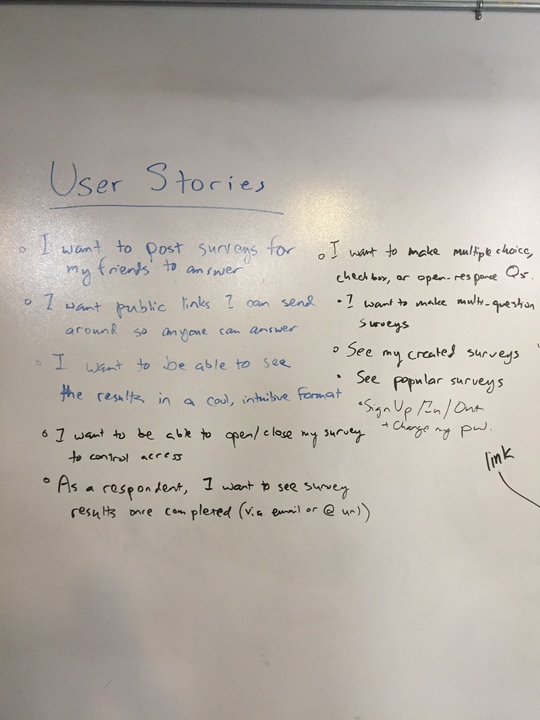 User Stories
I want to post surveys for
my friends to answer
I want public links I can send
around so anyone can answer
I want to be able to see
the results in a cool, intuitive format
I want to be able to open/close my survey
to control access
As a respondent, I want to see survey
results once completed (via email or @ url)
I want to make multiple choice,
checkbox, or open-response Qs.
I want to make multi-question
surveys
See my created surveys
See popular surveys
Sign Up/In/Out
+ Change my pw.
link